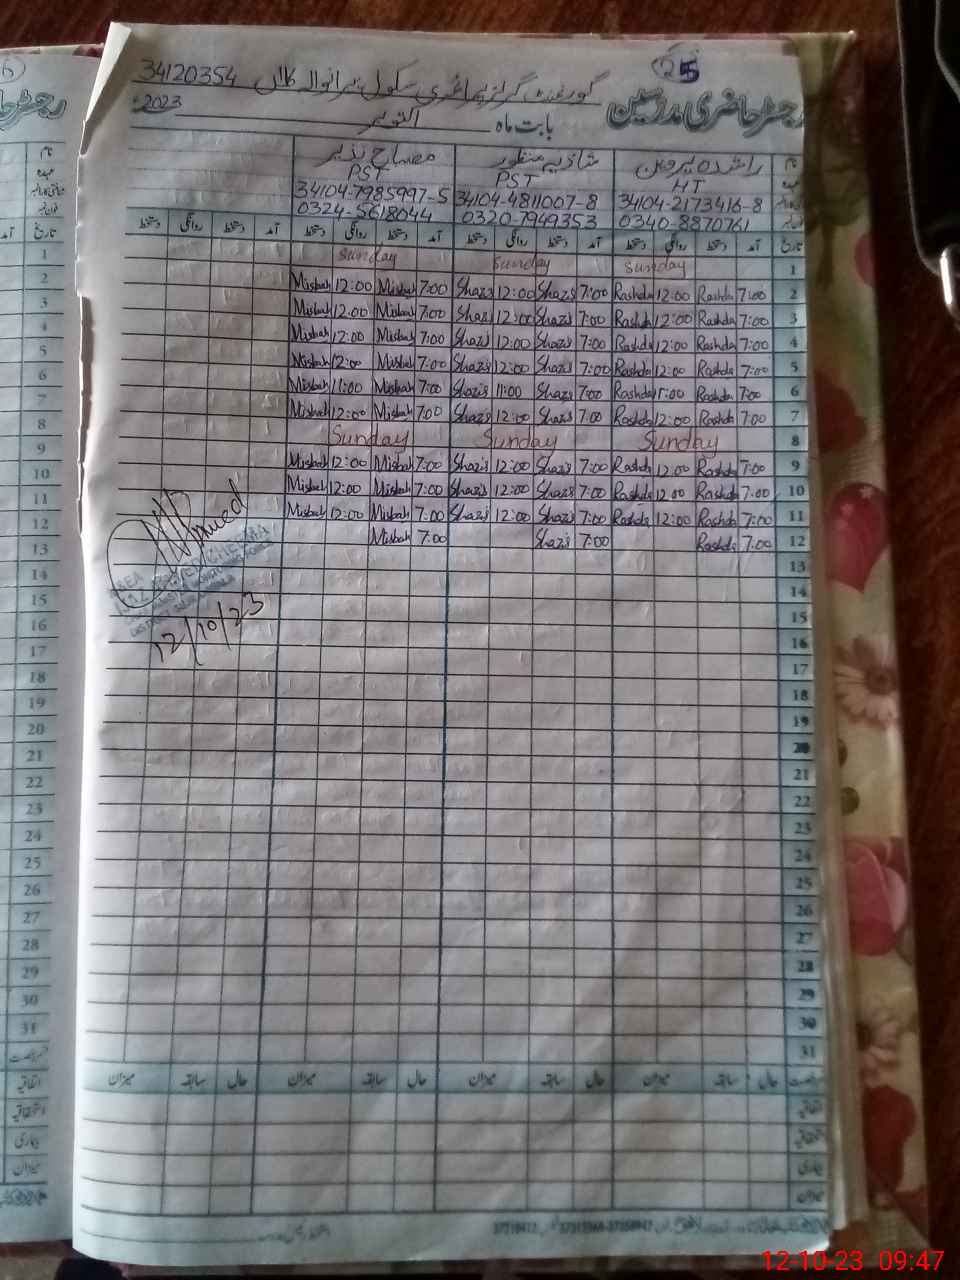 25
گورنمنٹ گرلز پرائمری سکول 34120354
رجسٹر حاضری مدرسین
بابت ماہ اکتوبر 2023ء
نام راشدہ پروین شازیہ منظور مصباح نذیر
عہدہ HT PST PST
34104-2173416-8 34104-4811007-8 34104-7985997-5
0340-8870761 0320-7949353 0324-5618044
تاریخ آمد دستخط روانگی دستخط آمد دستخط روانگی دستخط آمد دستخط روانگی دستخط آمد دستخط روانگی دستخط
1 Sunday Sunday Sunday
2 7:00 Rashda 12:00 Rashda 7:00 Shazi 12:00 Shazi 7:00 Misbah 12:00 Misbah
3 7:00 Rashda 12:00 Rashda 7:00 Shazi 12:00 Shazi 7:00 Misbah 12:00 Misbah
4 7:00 Rashda 12:00 Rashda 7:00 Shazi 12:00 Shazi 7:00 Misbah 12:00 Misbah
5 7:00 Rashda 12:00 Rashda 7:00 Shazi 12:00 Shazi 7:00 Misbah 12:00 Misbah
6 7:00 Rashda Rashda 7:00 Shazi 11:00 Shazi 7:00 Misbah 11:00 Misbah
7 7:00 Rashda 12:00 Rashda 7:00 Shazi 12:00 Shazi 7:00 Misbah 12:00 Misbah
8 Sunday Sunday Sunday
9 7:00 Rashda 12:00 Rashda 7:00 Shazi 12:00 Shazi 7:00 Misbah 12:00 Misbah
10 7:00 Rashda 12:00 Rashda 7:00 Shazi 12:00 Shazi 7:00 Misbah 12:00 Misbah
11 7:00 Rashda 12:00 Rashda 7:00 Shazi 12:00 Shazi 7:00 Misbah 12:00 Misbah
12 7:00 Rashda 7:00 Shazi 7:00 Misbah
13
14
15
16
17
18
19
20
21
22
23
24
25
26
27
28
29
30
31
CHEEMA
12/10/23
حال سابقہ میزان حال سابقہ میزان حال سابقہ میزان حال سابقہ میزان
اتفاقیہ
استحقاقیہ
بیماری
میزان
1
2
3
4
5
6
7
8
9
10
11
12
13
14
15
16
17
18
19
20
21
22
23
24
25
26
27
28
29
30
31
اتفاقیہ
استحقاقیہ
بیماری
میزان
12-10-23 09:47